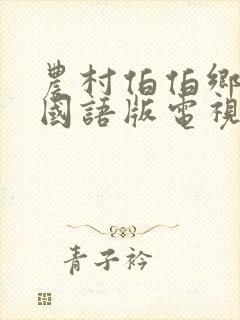 農村伯伯鄉
國語版電視
青子衿